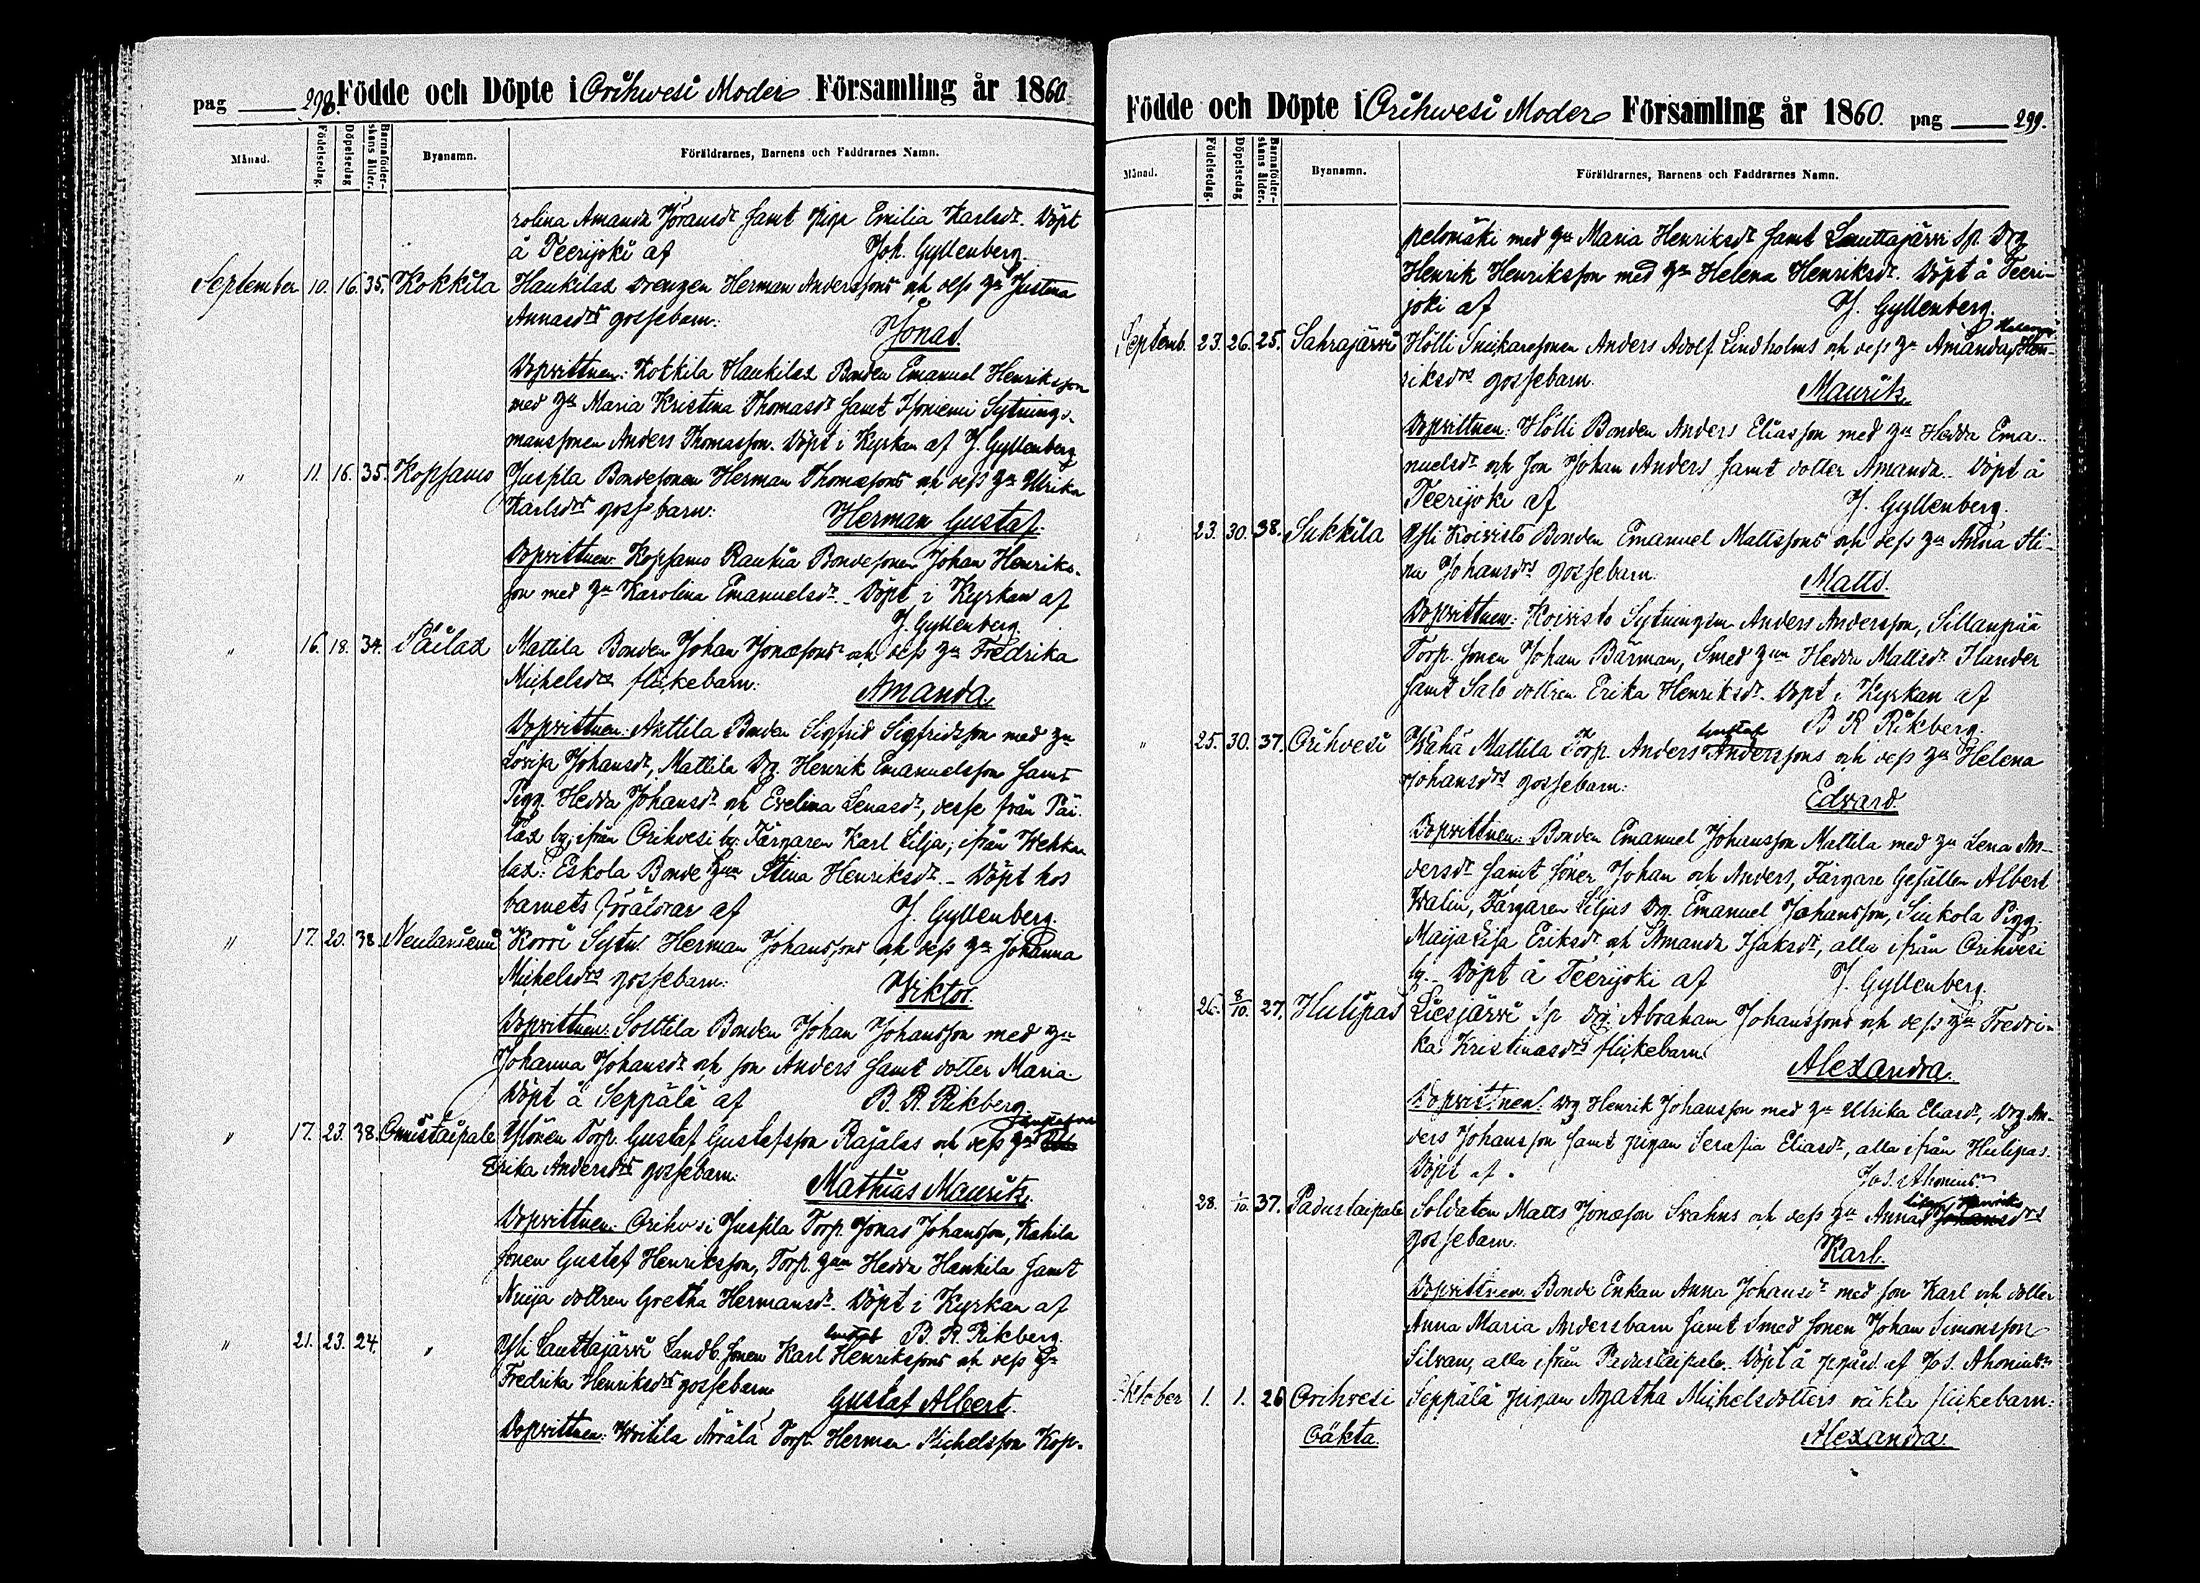 pag 298. Födde och Döpte i Orihwesi Moder Församling år 1860
Månad. Födelsedag. Döpelsedag Barnaföderskans ålder. Byanamn. Föräldrarnes, Barnens och Faddrarnes Namn.
rolina Amanda Göransdr samt pigr Emilia Karlsdr. Döpt
å Teerijoki af Joh. Gyllenberg.
September 10. 16. 35. Kokkila Haukilax Drengen Herman Anderssons och dess hu Justina
Annasdrs gossebarn: Jonas.
Dopvittnen: Kokkila Haukilax Bonden Emanuel Henriksson
med hu Maria Kristina Thomasdr samt Isoniemi Sytnings-
mansonen Anders Thomasson. Döpt i Kyrkan af J. Gyllenberg
" 11. 16. 35. Kopsamo Jussila Bondesonen Herman Thomassons och dess hu Ulrika
Karlsdrs gossebarn: Herman Gustaf.
Dopvittnen: Kopsamo Rautia Bondesonen Johan Henriks-
son med hu Karolina Emanuelsdr. Döpt i Kyrkan af
J. Gyllenberg.
" 16. 18. 34. Päilax Mattila Bonden Johan Jonassons och dess hu Fredrika
Michelsdrs flickebarn: Amanda.
Dopvittnen: Anttila Bonden Sigfrid Sigfridsson med hu
Lovisa Johansdr, Mattila Drg. Henrik Emanuelsson samt
Pigg. Hedda Johansdr och Evelina Lenasdr, desse från Päi-
lax by; ifrån Orihvesi by: Färgaren Karl Lilja; ifrån Wehka
lax: Eskola Bonde hun Stina Henriksdr. Döpt hos
barnets föräldrar af J. Gyllenberg.
" 17. 20. 38. Neulaniemi Korri Sytn. Herman Johanssons och dess hu Johanna
Michelsdrs gossebarn: Wiktor.
Dopvittnen: Solttila Bonden Johan Johansson med hu
Johanna Johansdr och son Anders samt dotter Maria.
Döpt å Seppälä af B. R. Rikberg
" 17. 23. 38. Onnistaipale Ylönen Torp. Gustaf Gustafsson Rajalas och dess hu
Erika Andersdrs gossebarn: Mathias Maurits.
Dopvittnen: Orihvesi Jussila Torp. Jonas Johansson, Kakila
sonen Gustaf Henriksson, Torp. hun Hedda Hankila samt
Nuija dottren Gretha Hermansdr. Döpt i Kyrkan af
B. R. Rikberg.
" 21. 23. 24. " Yli Lauttajärvi Landb. sonen Karl Gustaf Henrikssons och dess hu
Fredrika Henriksdrs gossebarn Gustaf Albert.
Dopvittnen: Woitila Torp. Herman Michelsson Kop-
Födde och Döpte i Orihwesi Moder Församling år 1860. pag 299.
Månad. Födelsedag. Döpelsedag Barnaföderskans ålder. Byanamn. Föräldrarnes, Barnens och Faddrarnes Namn.
pelomäki med hu Maria Henriksdr samt Lauttajärvi Sp. Drg
Henrik Henriksson med hu Helena Henriksdr. Döpt å Teeri-
joki af J. Gyllenberg.
Septemb. 23. 26. 25. Sahrajärvi Hölli Snickaresonen Anders Adolf Lindholms och dess hu Amanda Helena Hen-
riksdrs gossebarn. Maurits.
Dopvittnen: Hölli Bonden Anders Eliasson med hu Hedda Ema-
nuelsdr och son Johan Anders samt dotter Amanda. Döpt å
Teerijoki af J. Gyllenberg.
" 23. 30. 38. Sukkila Yli Koivisto Bonden Emanuel Mattssons och dess hu Anna Sti-
na Johansdrs gossebarn. Matts.
Dopvittnen: Koivisto Sytningsm Anders Andersson, Sillanpää
Torp. sonen Johan Bärman, Smed hun Hedda Mattsdr Ilander
samt Salo dottren Erika Henriksdr. Döpt i Kyrkan af
B R Rikberg.
" 25. 30. 37. Orihvesi Wähä Mattila Torp. Anders Gustaf Anderssons och dess hu Helena
Johansdrs gossebarn: Edvard.
Dopvittnen: Bonden Emanuel Johansson Mattila med hu Lena An-
dersdr samt söner Johan och Anders, Färgare Gesällen Albert
Walin, Färgaren Liljas Drg. Emanuel Johansson, Suikola Pigg.
Maija Lisa Eriksdr och Amanda Isaksdr, alla ifrån Orihvesi
by. Döpt å Teerijoki af J. Gyllenberg.
" 26. 8/10. 27. Hulipas Liesjärvi Sp. Drg. Abraham Johanssons och dess hu Fredri-
ka Kristinasdrs flickebarn Alexandra.
Dopvittnen: Drg. Henrik Johansson med hu Ulrika Eliasdr, Drg. An-
ders Johansson samt pigan Serafia Eliasdr, alla ifrån Hulipas.
Döpt af Jos. Ahonius
28. 1/10. 37. Padustaipale Soldaten Matts Jonasson Svahns och dess hu Anna Johansdrs
gossebarn: Karl.
Dopvittnen: Bonde Enkan Anna Johansdr med son Karl och dotter
Anna Maria Andersbarn samt Smed sonen Johan Simonsson
Silvan, alla ifrån Padustaipale. Döpt å pgård. af Jos. Ahonius
Oktober 1. 1. 26 Orihvesi Seppälä pigan Agatha Michelsdotters oäkta flickebarn:
Oäkta. Alexandra.